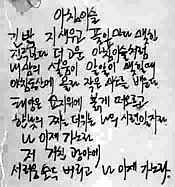 아침이슬
긴 밤 지새우고 풀잎마다 맺힌
진주보다 더 고운 아침이슬처럼
내 맘의 설움이 알알이 맺힐때
아침동산에 올라 작은 미소를 배운다
태양은 묘지위에 붉게 떠오르고
한낮의 찌는 더위는 나의 시련일지라
나 이제 가노라
저 거친 광야에
서러움 모두 버리고 나 이제 가노라.